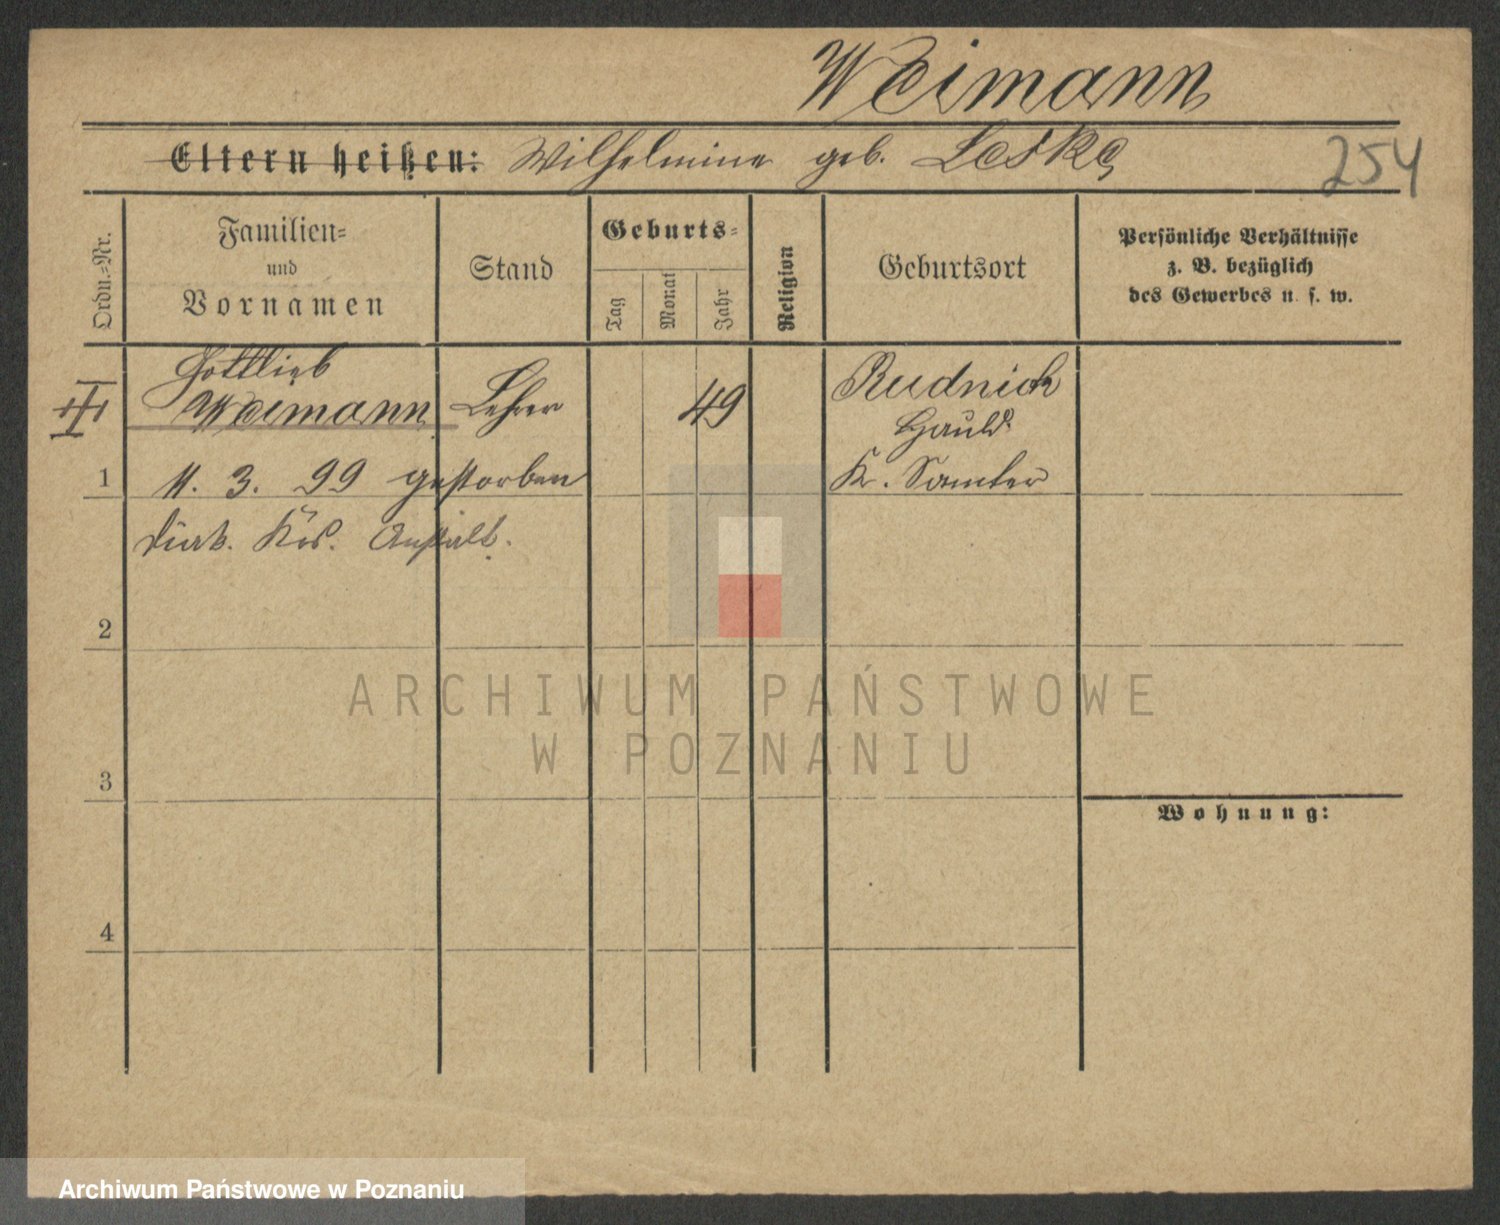 Weimann
Eltern heißen: Wilhelmine geb. Leske
254
Ordn.-Nr.
Familien-
und
Vornamen
Stand
Geburts-
Tag
Monat
Jahr
Religion
Geburtsort
Persönliche Verhältnisse
z. B. bezüglich
des Gewerbes u. s. w.
Gottlieb
Weimann Lehrer 49 Rudnick
Hauld.
1 11. 3. 99 gestorben K. Samter
Diak. Anstalt.
2
ARCHIWUM PAŃSTWOWE
W POZNANIU
3
Wohnung:
4
Archiwum Państwowe w Poznaniu